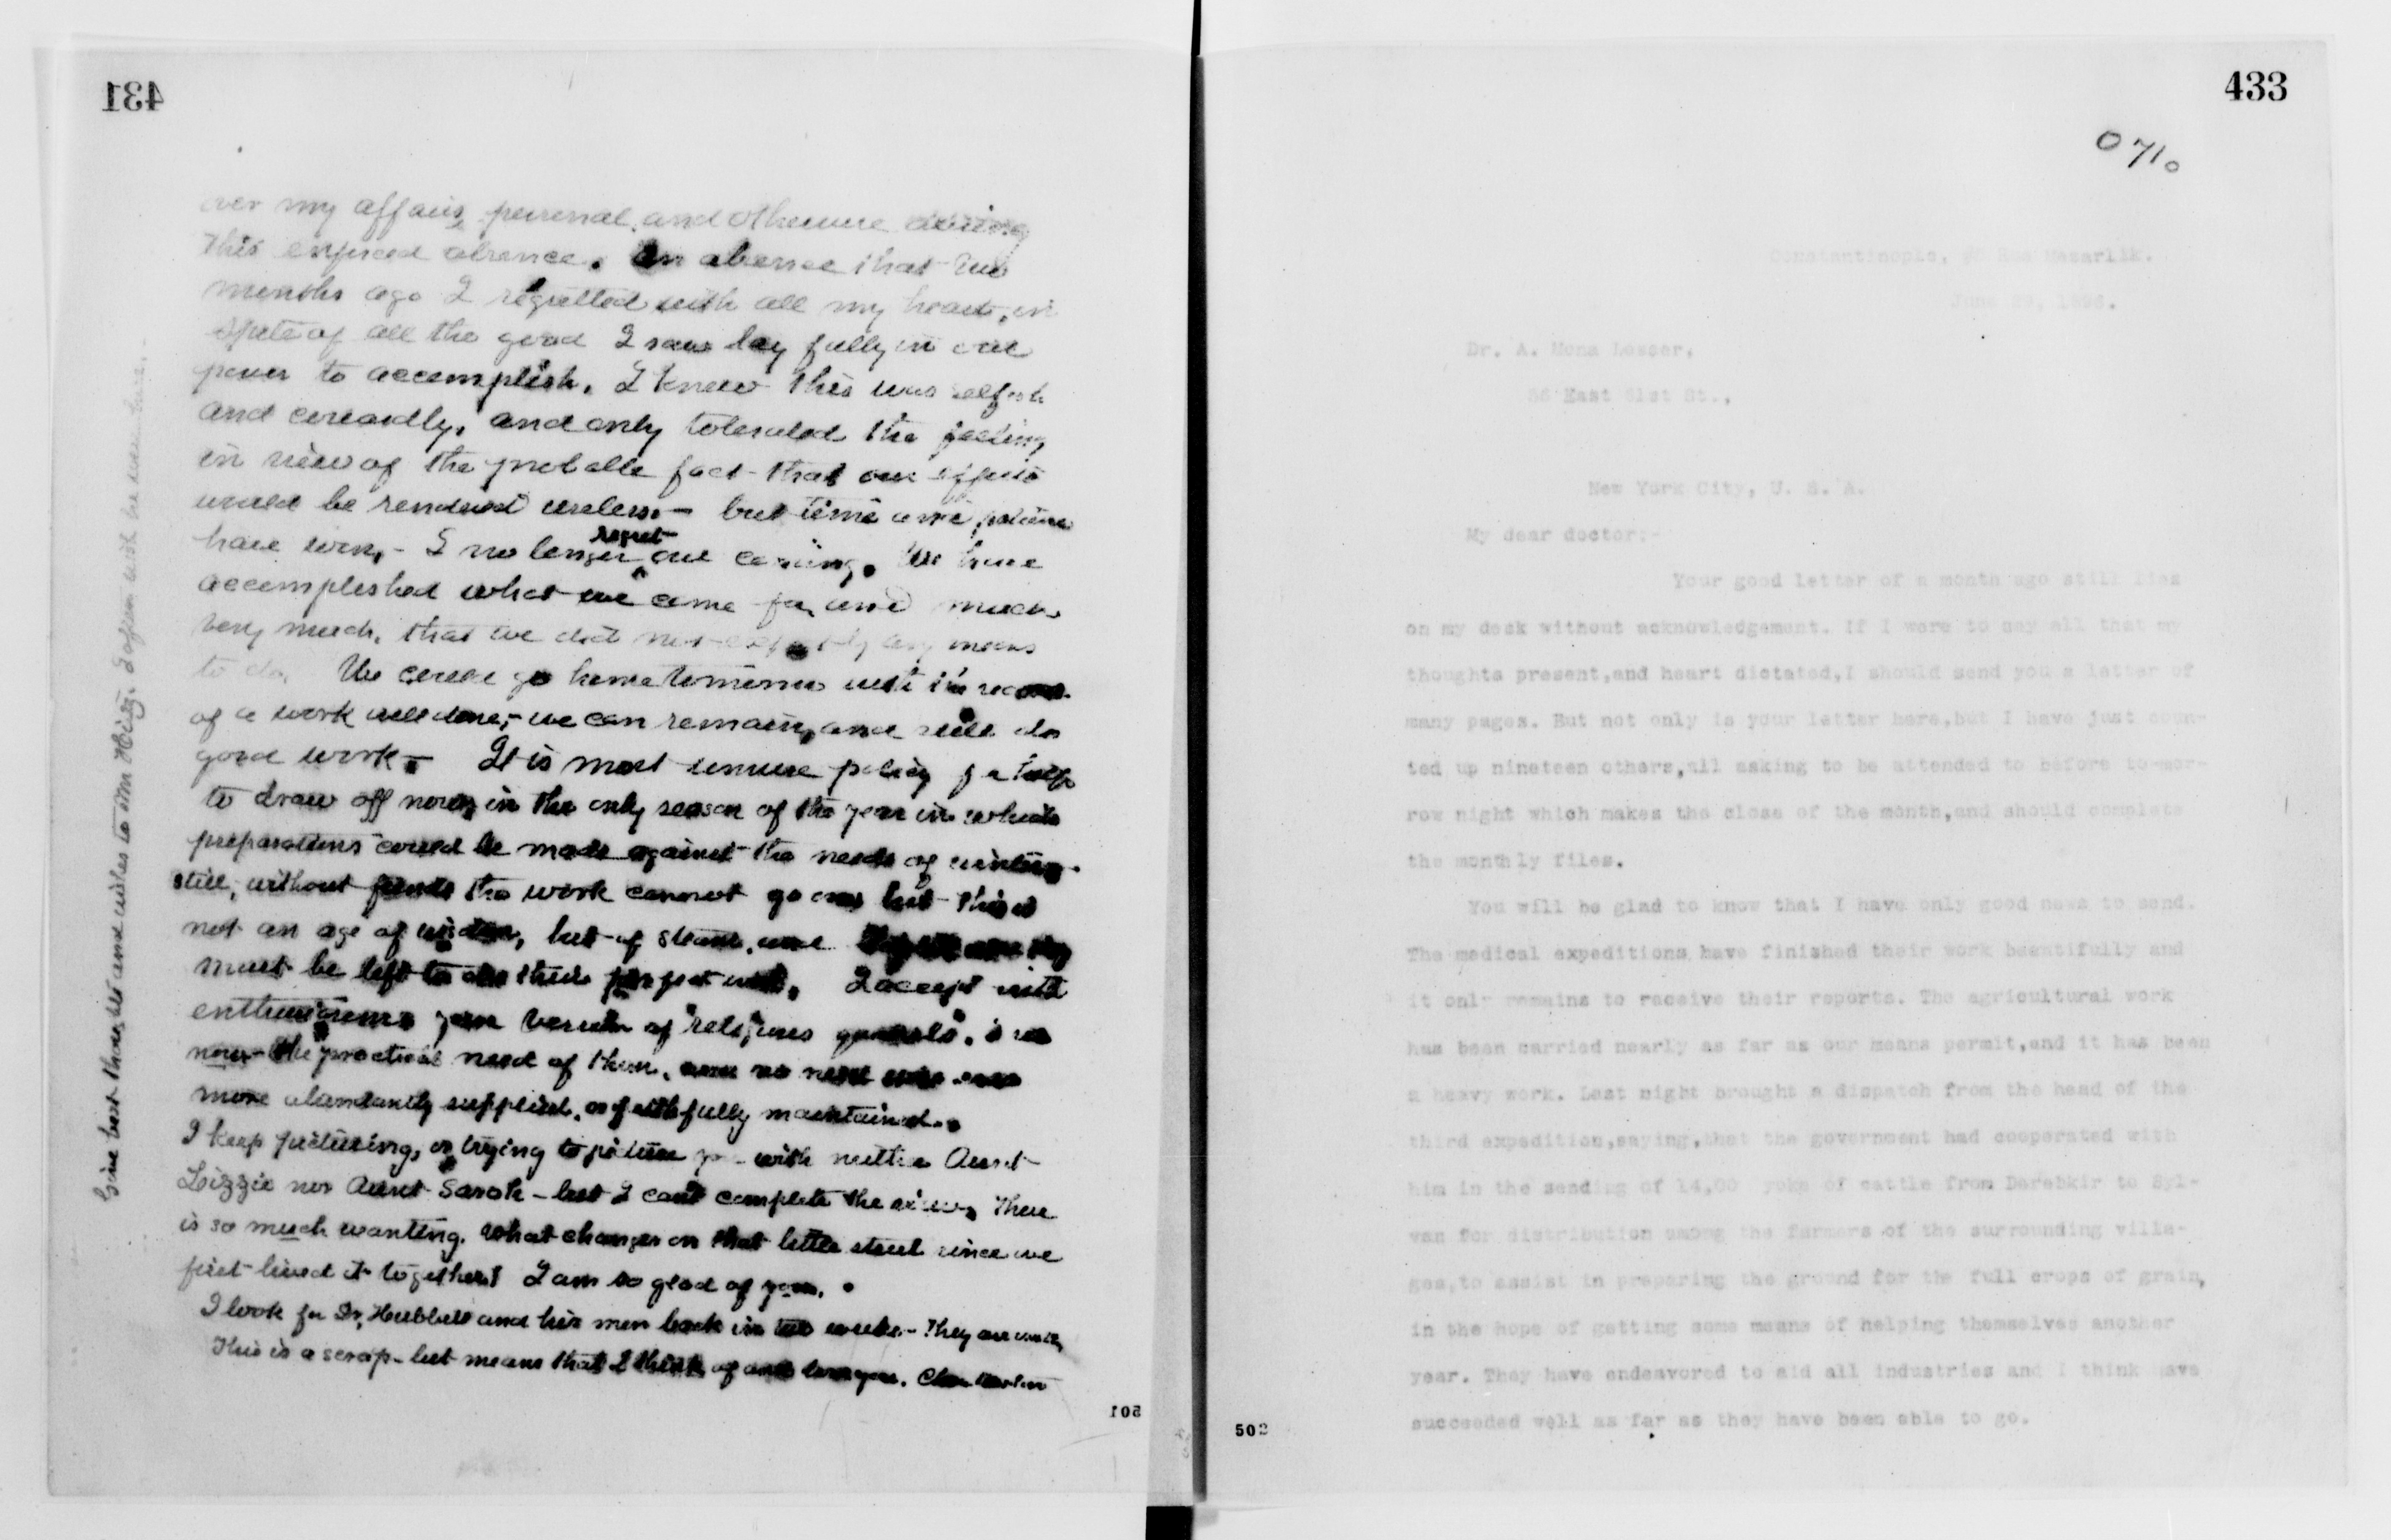 431
over my affairs, personal, and otherwise during
this enforced absence. An absence that two
months ago I regretted with all my heart, in
spite of all the good I saw lay fully in our
power to accomplish. I knew this was selfish
and cowardly, and only tolerated the feeling
in view of the probable fact that our efforts
would be rendered useless. – but time and patience
have won, – I no longer regret our coming. We have
accomplished what we came for, and much
very much, that we did not by any means
to do. We could go home tomorrow with the record
of a work well done, – we can remain, and still do
good work – It is most unwise policy for help
to draw off now, in the only season of the year in which
preparations could be made against the needs of winter –
still, without funds the work cannot go on, but this is
not an age of wisdom, but of steam, and
must be left to do their perfect work. I accept with
enthusiasm your version of "religious quarrels".
now the practical need of them, and no need was ever
more abundantly supplied, or faithfully maintained.
I keep picturing, or trying to picture you with neither Aunt
Lizzie nor Aunt Sarah – but I can't complete the view, there
is so much wanting. What changes on that little street since we
first lived it together! I am so glad of you.
I look for Dr. Hubbell and his men back in two weeks – They are
This is a scrap – but means that I think of and love you. Clara Barton
Give best thoughts and wishes to Mr
501
433
0710
Constantinople,
June 29, 1896.
Dr. A. Mona Lesser,
36 East 61st St.,
New York City, U. S. A.
My dear doctor:-
Your good letter of a month ago still lies
on my desk without acknowledgement. If I were to say all that my
thoughts present,and heart dictated,I should send you a letter of
many pages. But not only is your letter here,but I have just coun-
ted up nineteen others,all asking to be attended to before to-mor-
row night which makes the close of the month,and should complete
the monthly files.
You will be glad to know that I have only good news to send.
The medical expeditions have finished their work beautifully and
it only remains to receive their reports. The agricultural work
has been carried nearly as far as our means permit,and it has been
a heavy work. Last night brought a dispatch from the head of the
third expedition,saying,that the government had cooperated with
him in the sending of 14,00 yoke of cattle from Darebkir to Syl-
van for distribution among the farmers of the surrounding villa-
ges,to assist in preparing the ground for the full crops of grain,
in the hope of getting some means of helping themselves another
year. They have endeavored to aid all industries and I think have
succeeded well as far as they have been able to go.
502